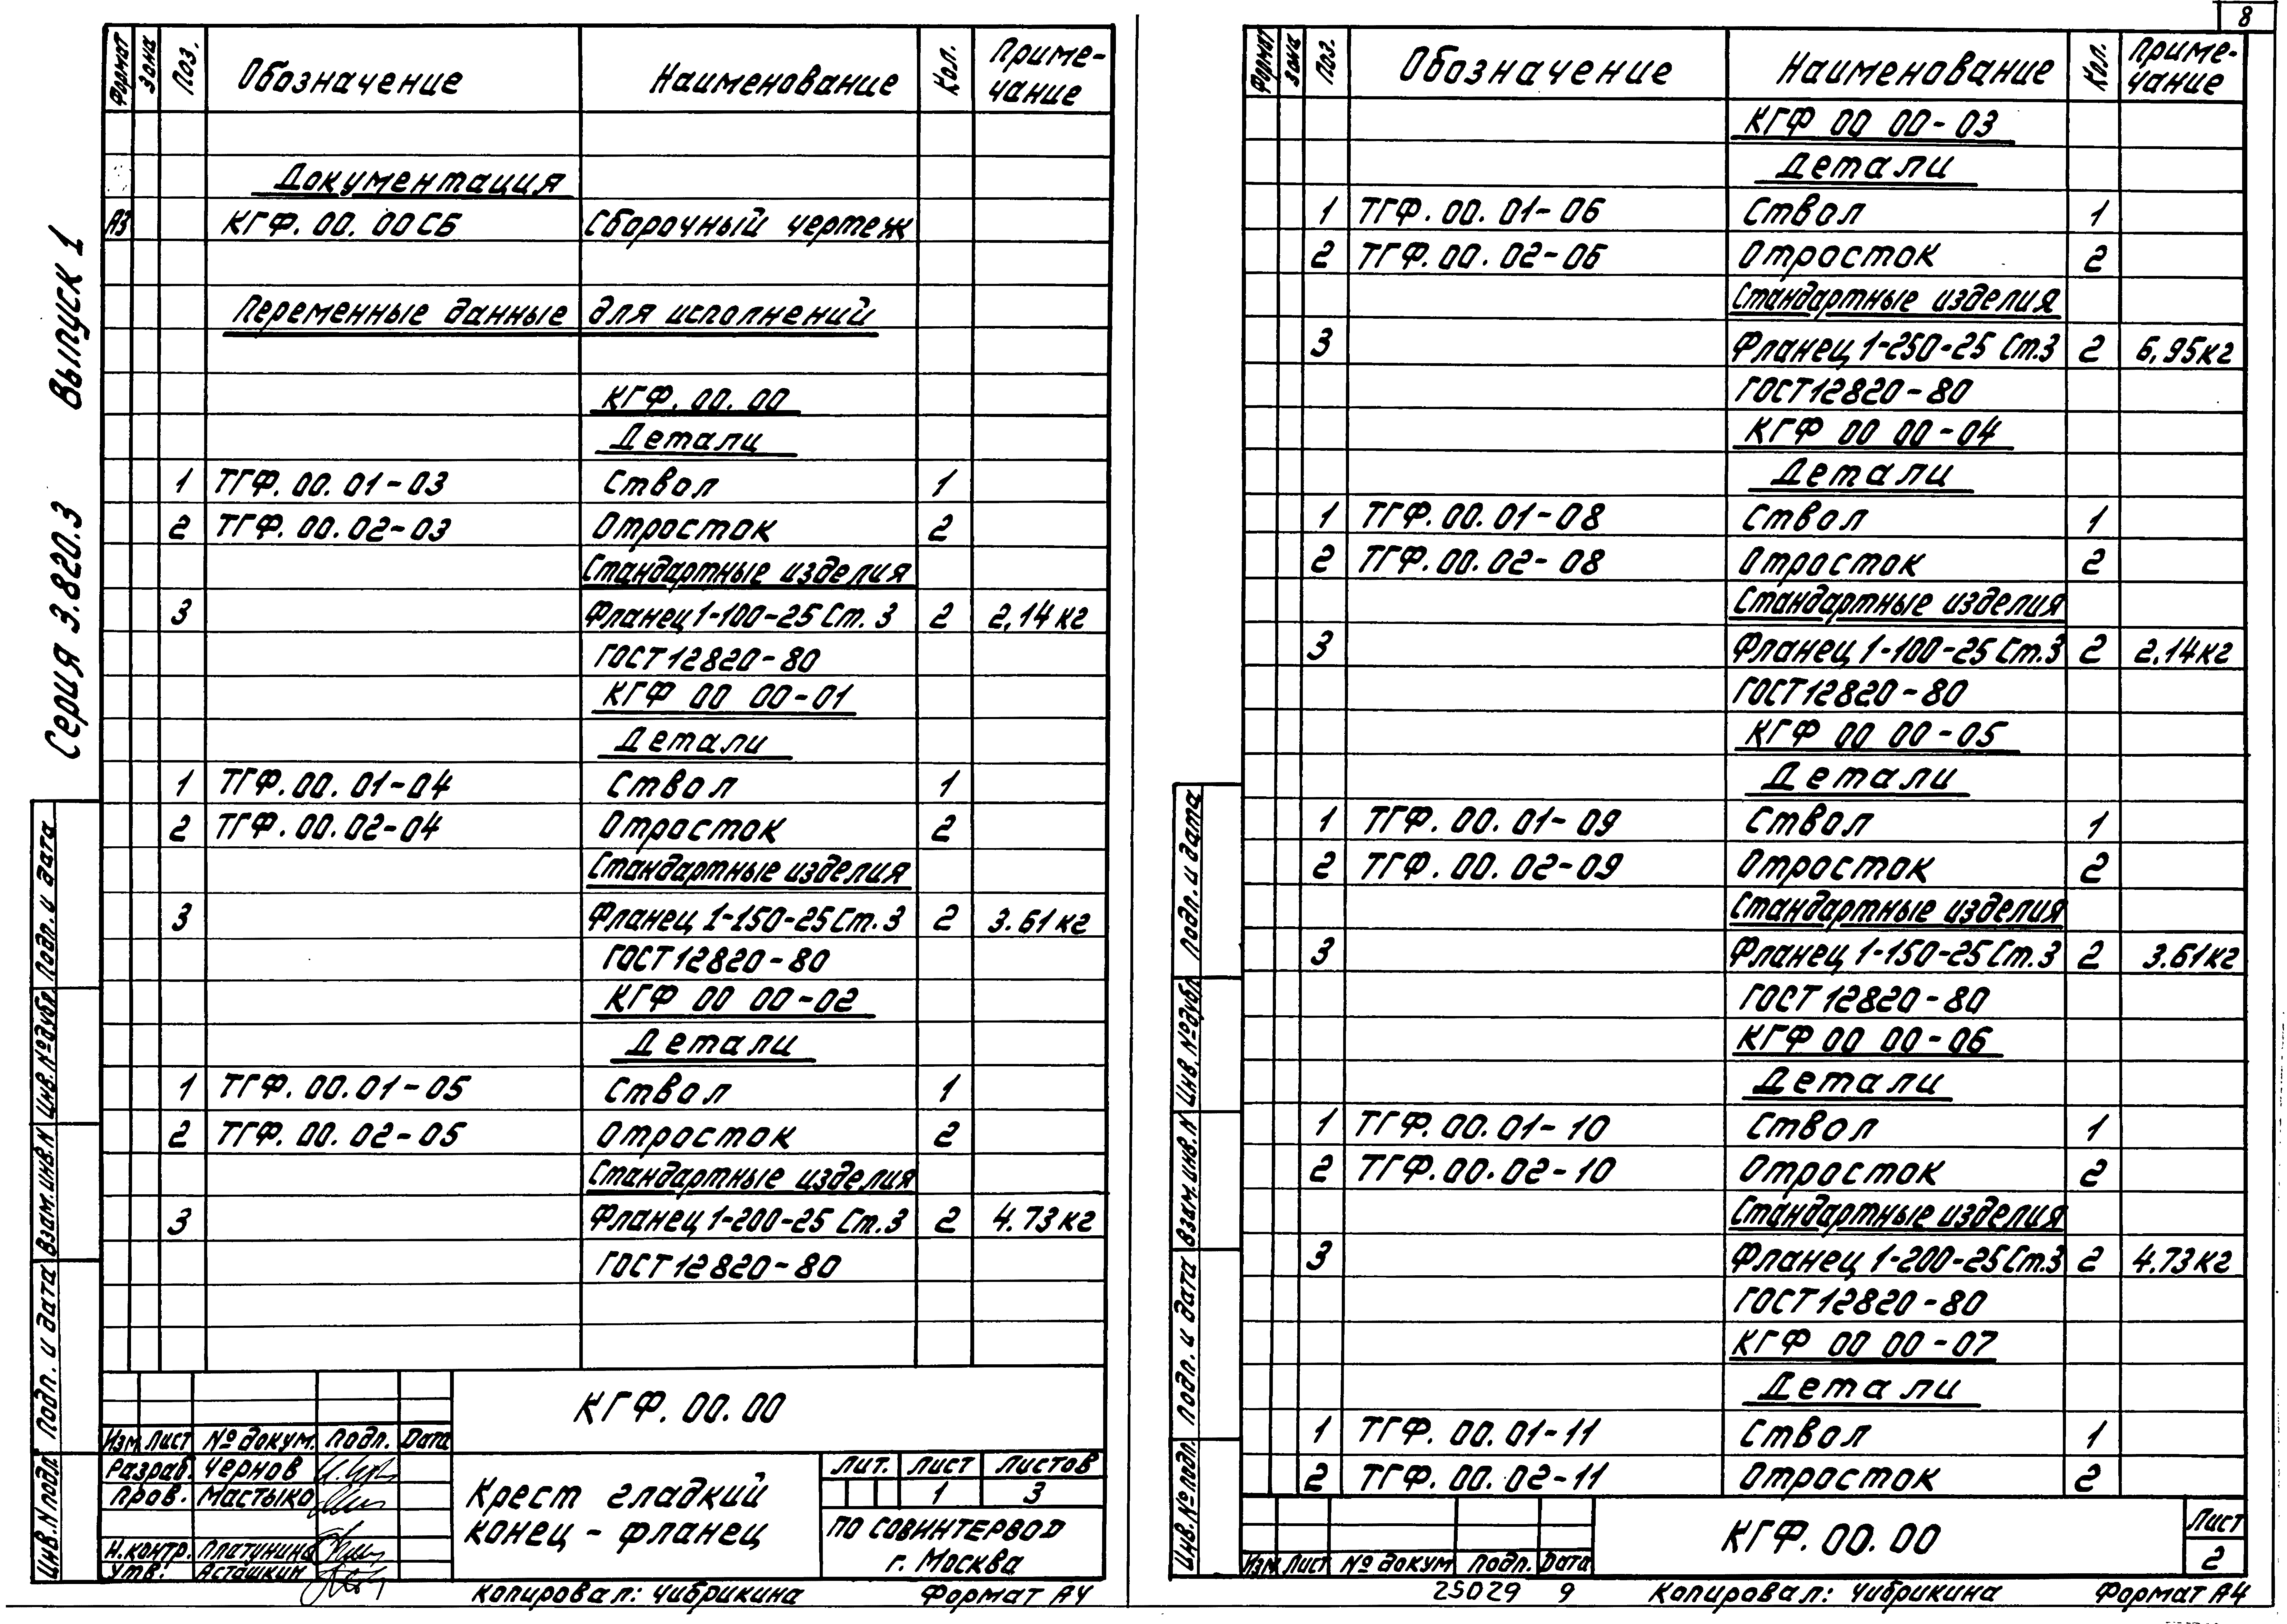 8
Серия 3.820.3 Выпуск 1
Формат Зона Поз. Обозначение Наименование Кол. Приме-
чание
Документация
А3 КГФ. 00. 00 СБ Сборочный чертеж
Переменные данные для исполнений
КГФ. 00. 00
Детали
1 ТГФ. 00. 01-03 Ствол 1
2 ТГФ. 00. 02-03 Отросток 2
Стандартные изделия
3 Фланец 1-100-25 Ст. 3 2 2,14 кг
ГОСТ 12820-80
КГФ 00 00-01
Детали
1 ТГФ. 00. 01-04 Ствол 1
2 ТГФ. 00. 02-04 Отросток 2
Стандартные изделия
3 Фланец 1-150-25 Ст. 3 2 3.61 кг
ГОСТ 12820-80
КГФ 00 00-02
Детали
1 ТГФ. 00. 01-05 Ствол 1
2 ТГФ. 00. 02-05 Отросток 2
Стандартные изделия
3 Фланец 1-200-25 Ст. 3 2 4.73 кг
ГОСТ 12820-80
КГФ. 00. 00
Изм Лист № докум. Подп. Дата
Разраб. Чернов
Пров. Мастыко
Н.контр. Платунина
Утв. Асташкин
Крест гладкий
конец - фланец
Лит. Лист Листов
1 3
ПО СОВИНТЕРВОД
г. Москва
Инв. N подл. Подп. и дата Взам. инв. N Инв. № дубл. Подп. и дата
Копировал: Чибрикина Формат А4
Формат Зона Поз. Обозначение Наименование Кол. Приме-
чание
КГФ 00 00-03
Детали
1 ТГФ. 00. 01-06 Ствол 1
2 ТГФ. 00. 02-06 Отросток 2
Стандартные изделия
3 Фланец 1-250-25 Ст.3 2 6,95 кг
ГОСТ 12820-80
КГФ 00 00-04
Детали
1 ТГФ. 00. 01-08 Ствол 1
2 ТГФ. 00. 02-08 Отросток 2
Стандартные изделия
3 Фланец 1-100-25 Ст.3 2 2,14 кг
ГОСТ 12820-80
КГФ 00 00-05
Детали
1 ТГФ. 00. 01-09 Ствол 1
2 ТГФ. 00. 02-09 Отросток 2
Стандартные изделия
3 Фланец 1-150-25 Ст.3 2 3.61 кг
ГОСТ 12820-80
КГФ 00 00-06
Детали
1 ТГФ. 00. 01-10 Ствол 1
2 ТГФ. 00. 02-10 Отросток 2
Стандартные изделия
3 Фланец 1-200-25 Ст.3 2 4.73 кг
ГОСТ 12820-80
КГФ 00 00-07
Детали
1 ТГФ. 00. 01-11 Ствол 1
2 ТГФ. 00. 02-11 Отросток 2
Изм Лист № докум Подп. Дата
КГФ. 00. 00
Лист
2
Инв. № подл. Подп. и дата Взам. инв. N Инв. № дубл Подп. и дата
25029 9 Копировал: Чибрикина Формат А4